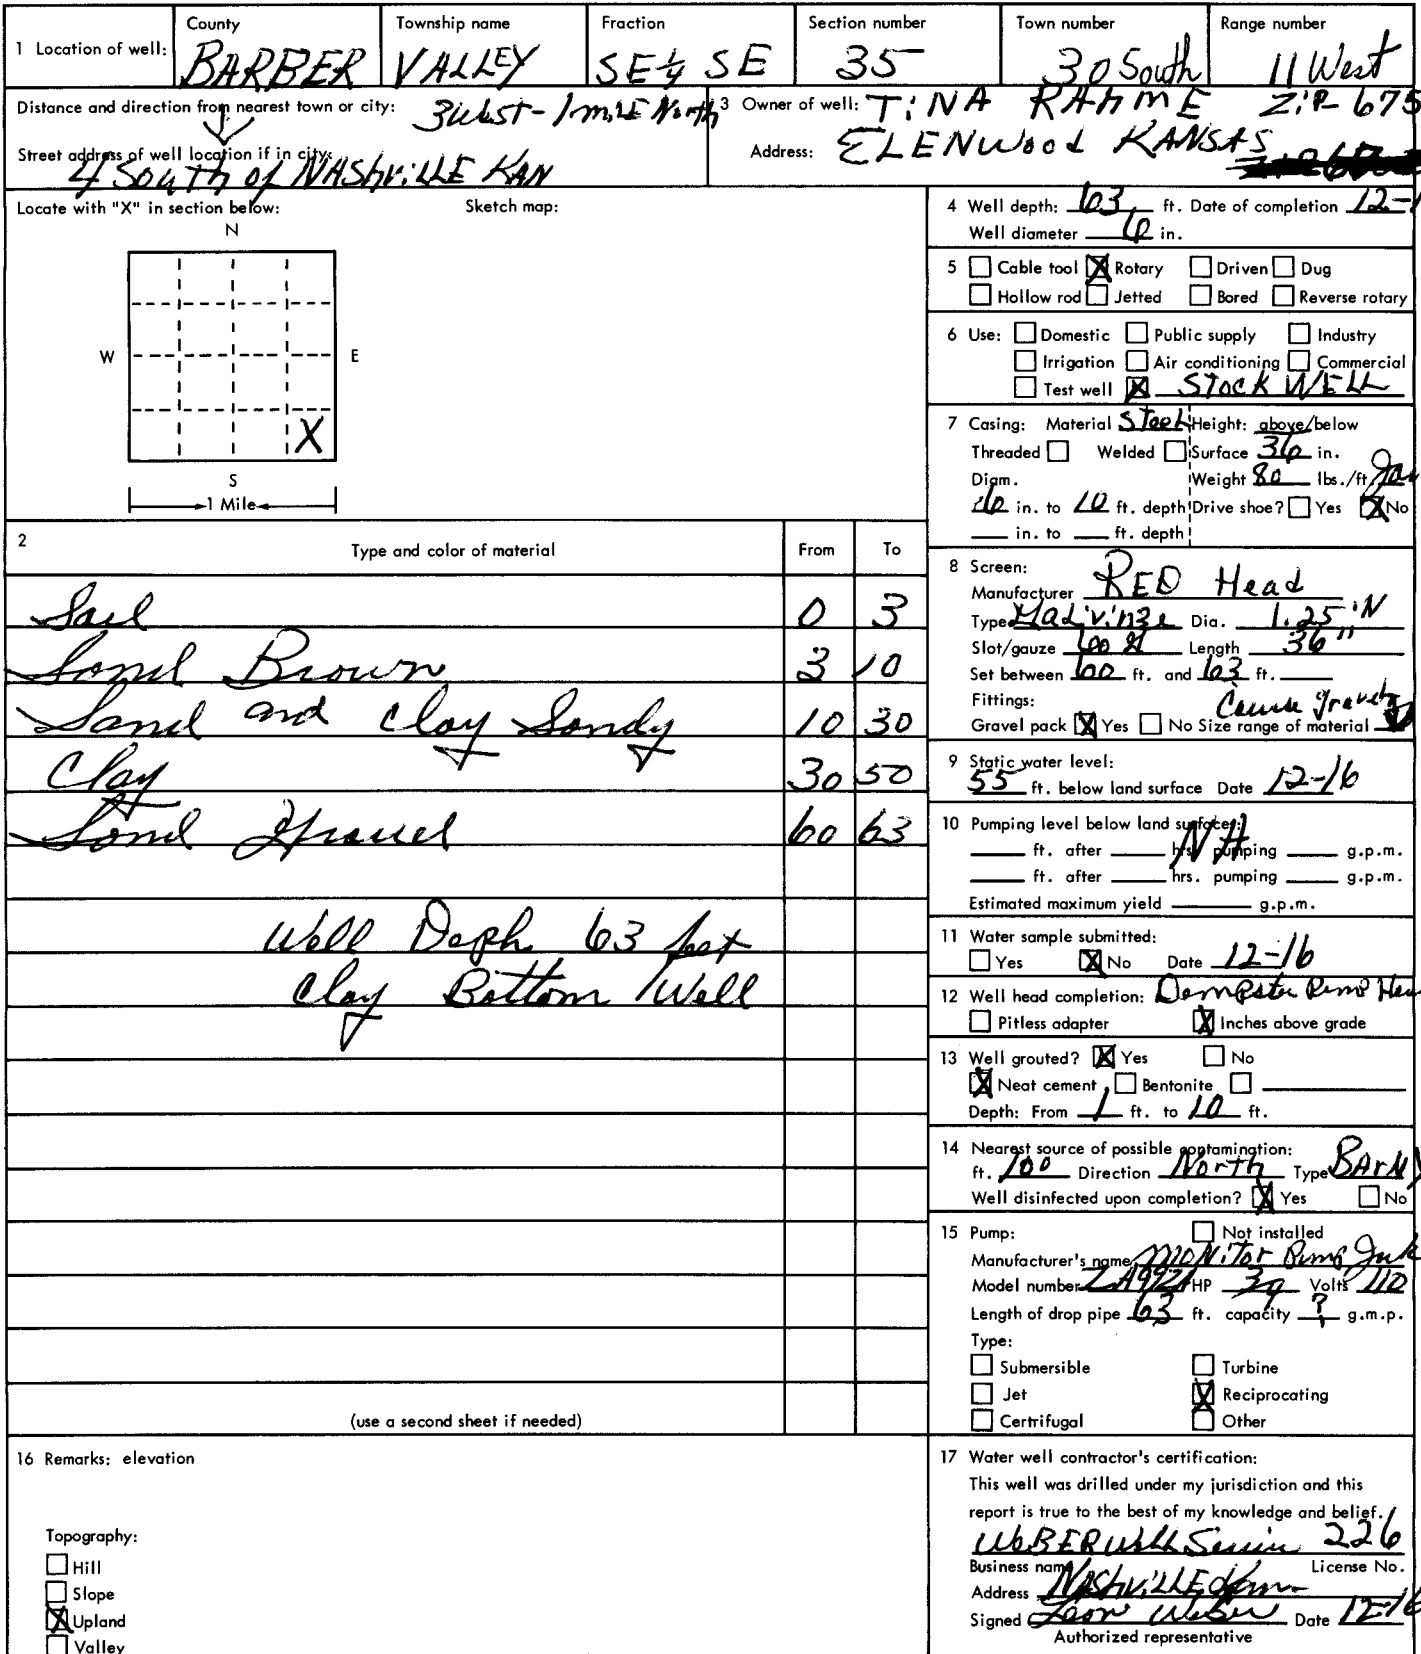 1 Location of well: County BARBER Township name VALLEY Fraction SE¼ SE Section number 35 Town number 30 South Range number 11 West
Distance and direction from nearest town or city: 3 West - 1 mile North
Street address of well location if in city:
4 South of NAShViLLE KAN
3 Owner of well: TiNA RAhME ZiP 675
Address: ELENWood KANSAS
Locate with "X" in section below: Sketch map:
N
W E
X
S
1 Mile
2 Type and color of material From To
Soil 0 3
Sand Brown 3 10
Sand and Clay Sandy 10 30
Clay 30 50
Sand Gravel 60 63
Well Deph 63 feet
Clay Bottom Well
(use a second sheet if needed)
16 Remarks: elevation
Topography:
Hill
Slope
X Upland
Valley
4 Well depth: 63 ft. Date of completion 12-1
Well diameter 6 in.
5 Cable tool X Rotary Driven Dug
Hollow rod Jetted Bored Reverse rotary
6 Use: Domestic Public supply Industry
Irrigation Air conditioning Commercial
Test well X STOCK WELL
7 Casing: Material Steel Height: above/below
Threaded Welded Surface 36 in.
Diam. Weight 80 lbs./ft.
6 in. to 10 ft. depth Drive shoe? Yes X No
in. to ft. depth
8 Screen:
Manufacturer RED Head
Type Dia. 1.25 iN
Slot/gauze Length 36"
Set between 60 ft. and 63 ft.
Fittings:
Gravel pack X Yes No Size range of material
9 Static water level:
55 ft. below land surface Date 12-16
10 Pumping level below land surface:
ft. after hrs. pumping g.p.m.
ft. after hrs. pumping g.p.m.
Estimated maximum yield g.p.m.
11 Water sample submitted:
Yes X No Date 12-16
12 Well head completion: Dempster Pump
Pitless adapter X Inches above grade
13 Well grouted? X Yes No
X Neat cement Bentonite
Depth: From 1 ft. to 10 ft.
14 Nearest source of possible contamination:
ft. 100 Direction North Type BArNy
Well disinfected upon completion? X Yes No
15 Pump: Not installed
Manufacturer's name MONiTor Pump
Model number HP Volts 110
Length of drop pipe 63 ft. capacity ? g.m.p.
Type:
Submersible Turbine
Jet X Reciprocating
Certrifugal Other
17 Water well contractor's certification:
This well was drilled under my jurisdiction and this
report is true to the best of my knowledge and belief.
WEBER Well Service 226
Business name License No.
Address NAShviLLE
Signed Leon Weber Date 12-16
Authorized representative